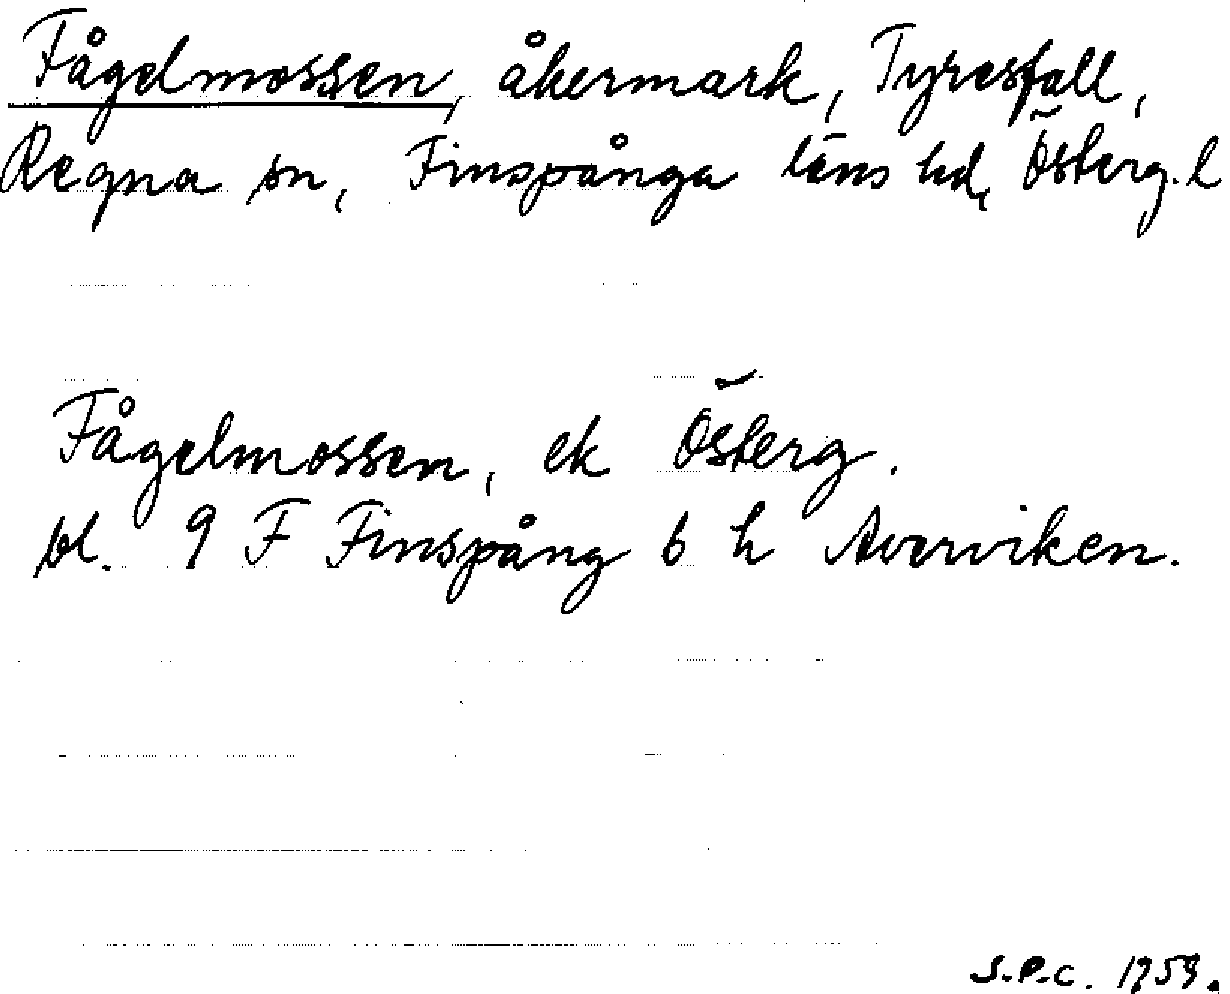 Fågelmossen, åkermark, Tyresfall,
Regna sn, Finspånga läns hd, Österg. l
Fågelmossen, ek Österg.
bl. 9 F Finspång 6 h Averviken.
S.P.C. 1959.